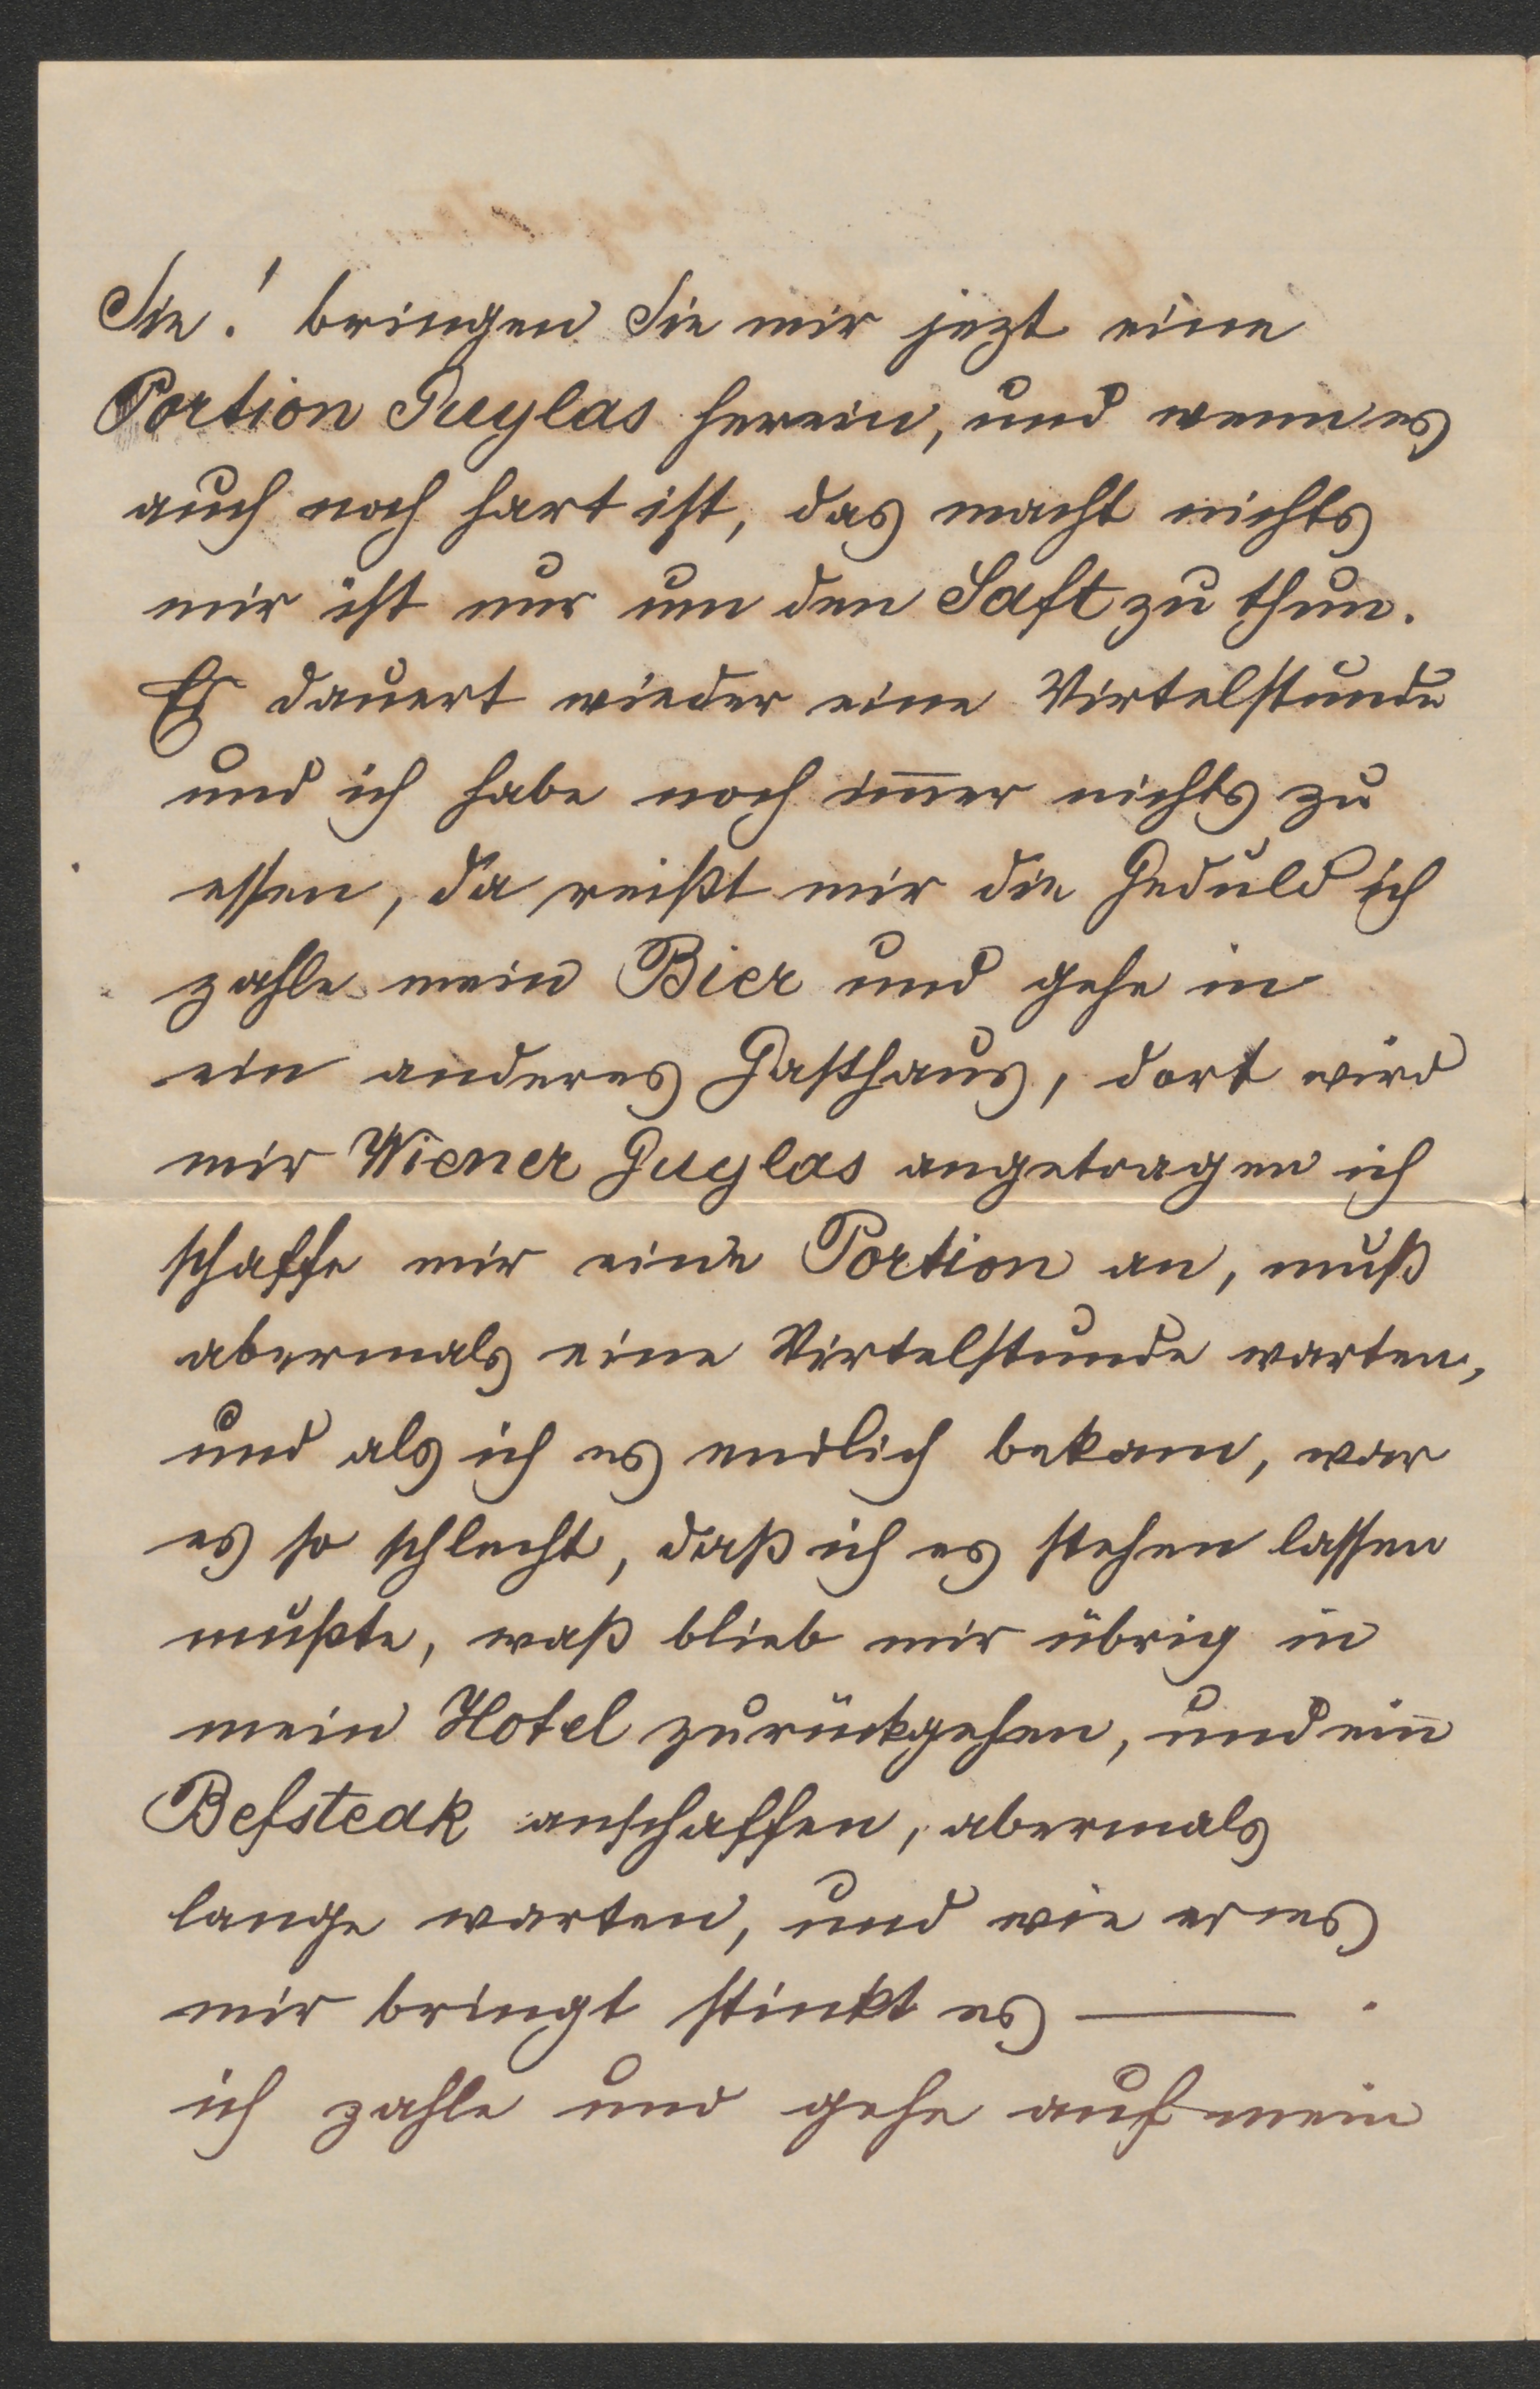 Sie! bringen Sie mir jezt eine
Portion Guylas herein, und wenn es
auch noch hart ist, das macht nichts
mir ist nur um den Saft zu thun.
Es dauert wieder eine Virtelstunde
und ich habe noch im̅er nichts zu
essen, da reißt mir die Geduld ich
zahle mein Bier und gehe in
ein anderes Gasthaus, dort wird
mir Wiener Guylas angetragen ich
schaffe mir eine Portion an, muß
abermals eine Virtelstunde warten,
und als ich es endlich bekam, war
es so schlecht, daß ich es stehen lassen
mußte, waß blieb mir übrig in
mein Hotel zurückgehen, und ein̅
Befsteak anschaffen, abermals
lange warten, und wie er es
mir bringt stinkt es — .
ich zahle und gehe auf mein